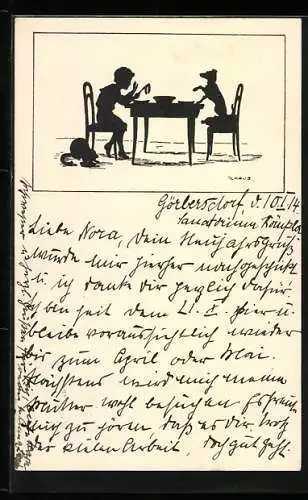 Görbersdorf, d. 10.I.14
Sanatorium
Liebe Nora, Dein Neujahrsgruß
wurde mir hierher nachgeschickt
u. ich danke Dir herzlich dafür.
Ich bin seit dem 4. I. hier u.
bleibe voraussichtlich wieder
bis zum April oder Mai.
Nächstens wird mich meine
Mutter wohl besuchen. Es freut
mich zu hören daß es Dir trotz
der vielen Arbeit, doch gut geht.